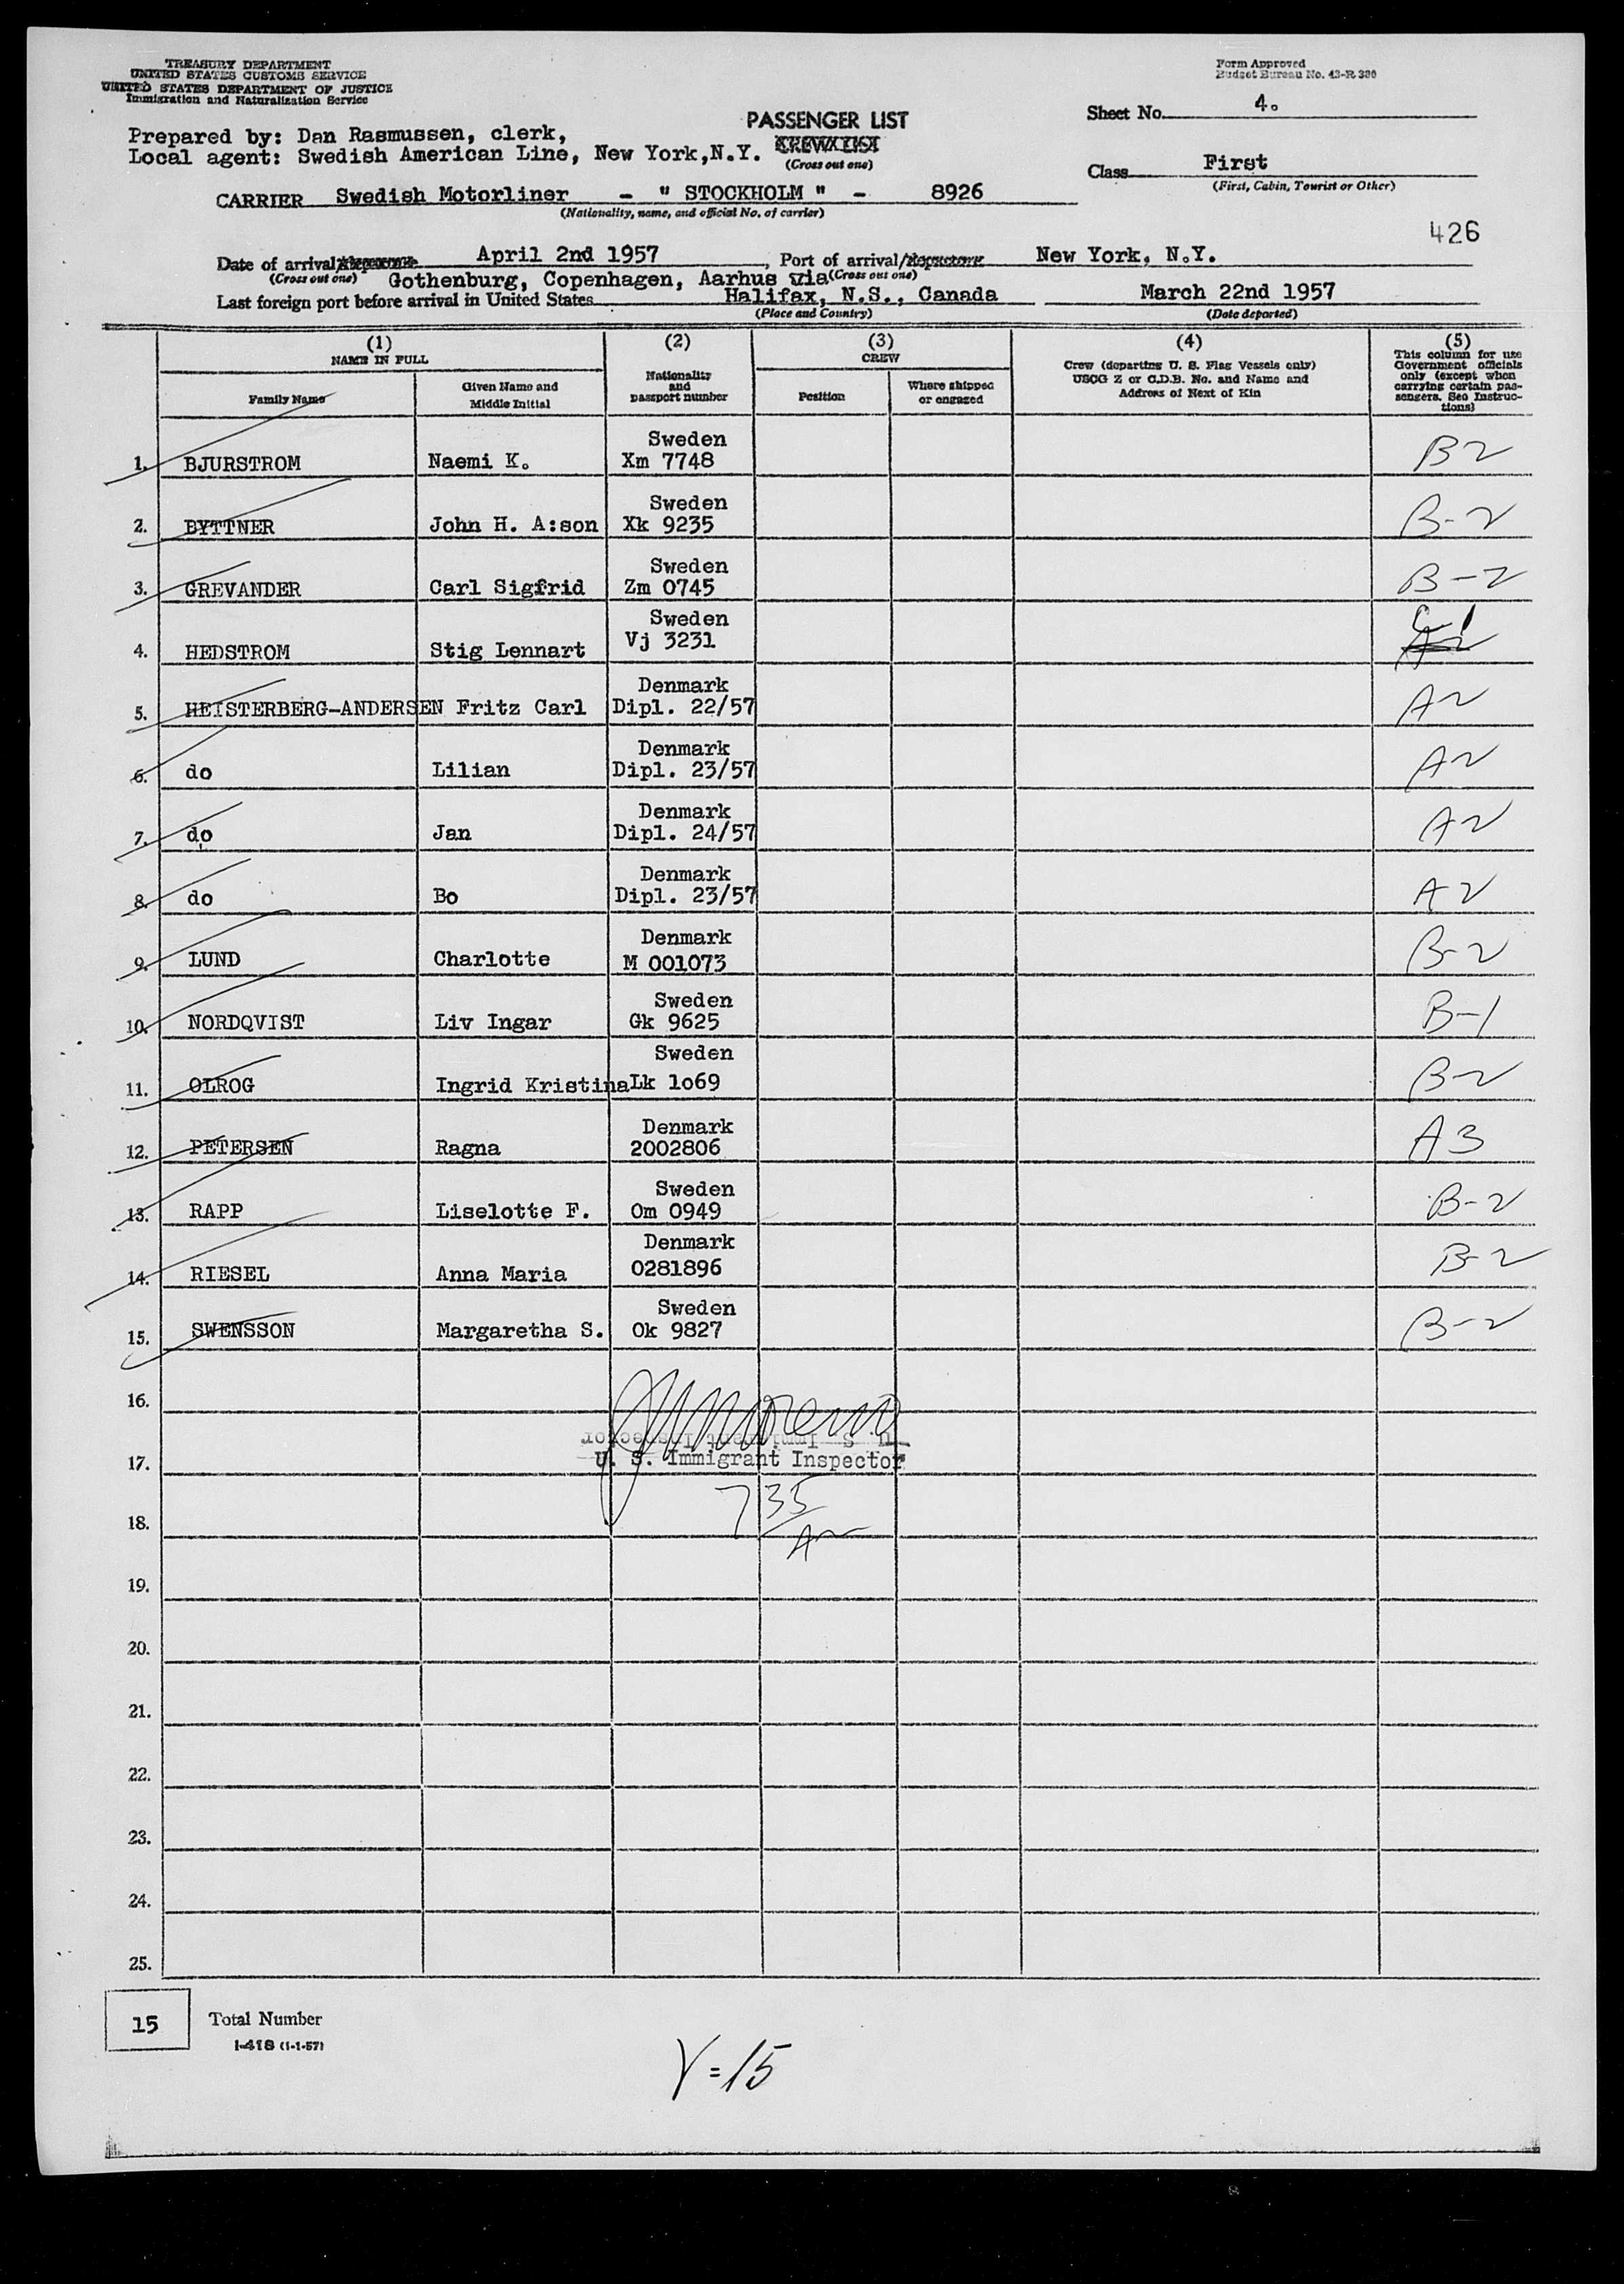 TREASURY DEPARTMENT
UNITED STATES CUSTOMS SERVICE
UNITED STATES DEPARTMENT OF JUSTICE
Immigration and Naturalization Service
Form Approved
Budget Bureau No. 43-R 330
Sheet No. 4.
PASSENGER LIST
CREW LIST
(Cross out one)
Prepared by: Dan Rasmussen, clerk,
Local agent: Swedish American Line, New York,N.Y.
Class First
(First, Cabin, Tourist or Other)
CARRIER Swedish Motorliner - " STOCKHOLM " - 8926
(Nationality, name, and official No. of carrier)
426
Date of arrival/departure April 2nd 1957, Port of arrival/departure New York, N.Y.
(Cross out one) Gothenburg, Copenhagen, Aarhus via (Cross out one)
Last foreign port before arrival in United States Halifax, N.S., Canada March 22nd 1957
(Place and Country) (Date departed)
(1) (2) (3) (4) (5)
NAME IN FULL
Family Name
Given Name and Middle Initial
Nationality and passport number
CREW
Position
Where shipped or engaged
Crew (departing U. S. Flag Vessels only) USCG Z or C.D.B. No. and Name and Address of Next of Kin
This column for use Government officials only (except when carrying certain passengers. See Instructions)
1. BJURSTROM Naemi K. Sweden Xm 7748 B2
2. BYTTNER John H. A:son Sweden Xk 9235 B-2
3. GREVANDER Carl Sigfrid Sweden Zm 0745 B-2
4. HEDSTROM Stig Lennart Sweden Vj 3231
5. HEISTERBERG-ANDERSEN Fritz Carl Denmark Dipl. 22/57 A2
6. do Lilian Denmark Dipl. 23/57 A2
7. do Jan Denmark Dipl. 24/57 A2
8. do Bo Denmark Dipl. 23/57 A2
9. LUND Charlotte Denmark M 001073 B-2
10. NORDQVIST Liv Ingar Sweden Gk 9625 B-1
11. OLROG Ingrid Kristina Sweden Lk 1o69 B-2
12. PETERSEN Ragna Denmark 2002806 A3
13. RAPP Liselotte F. Sweden Om 0949 B-2
14. RIESEL Anna Maria Denmark 0281896 B-2
15. SWENSSON Margaretha S. Sweden Ok 9827 B-2
16.
17. U. S. Immigrant Inspector
735
18.
19.
20.
21.
22.
23.
24.
25.
15 Total Number
I-418 (1-1-57)
V=15